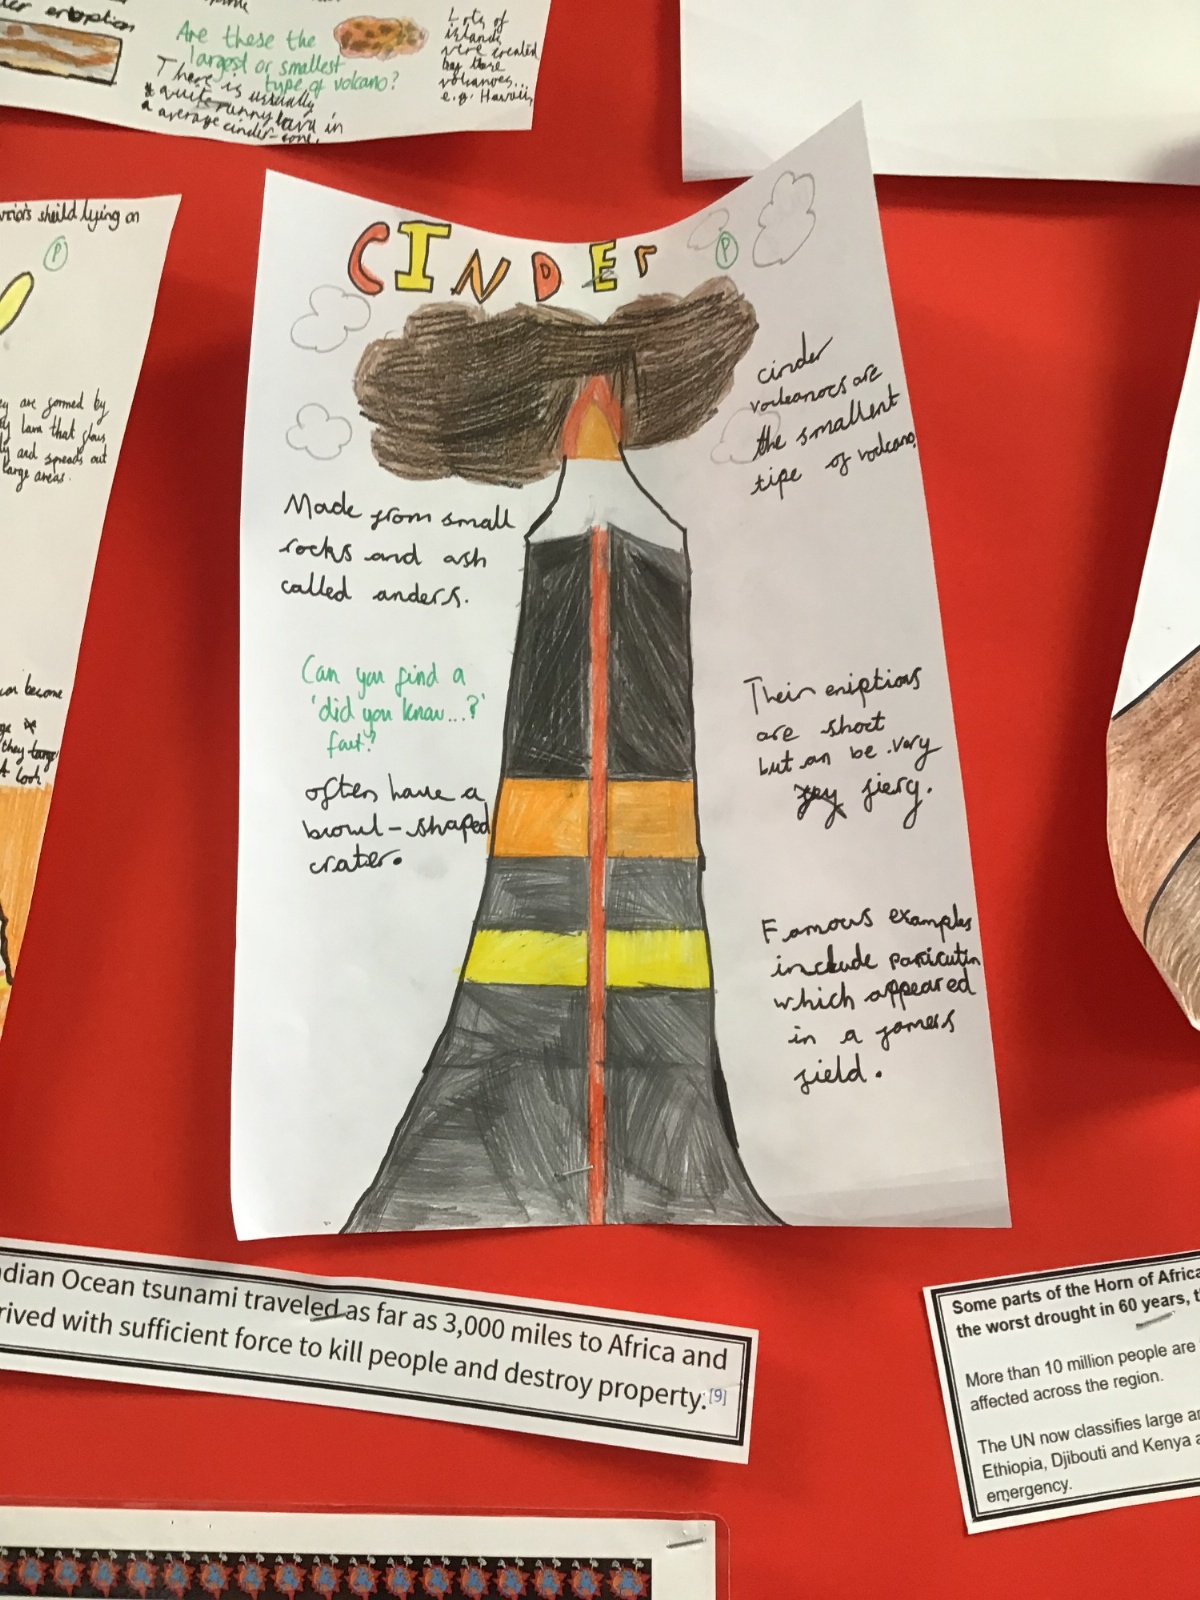 er eruption
Are these the
largest or smallest
type of volcano?
There is usually
quite runny lava in
average cinder-cone.
Lots of
islands
were created
by these
volcanoes...
e.g. Hawaii,
sheild lying on
P
ey are formed by
lava that flows
ly and spreads out
large areas.
become
they
A look
CINDEr
P
cinder
volcanoes are
the smallent
tipe of volcano.
Made from small
rocks and ash
called anders.
Can you find a
'did you know...?'
fact?
often have a
browl-shaped
crater.
Their eruptions
are short
but can be very
fiery.
Famous examples
include paricutin
which appeared
in a
field.
dian Ocean tsunami traveled as far as 3,000 miles to Africa and
rived with sufficient force to kill people and destroy property.[9]
Some parts of the Horn of Africa
the worst drought in 60 years, t
More than 10 million people are
affected across the region.
The UN now classifies large a
Ethiopia, Djibouti and Kenya a
emergency.